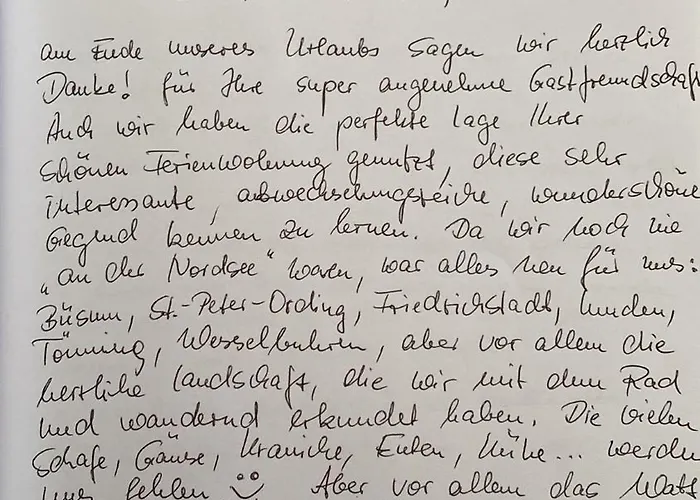 am Ende unseres Urlaubs sagen wir herzlich
Danke! für Ihre super angenehme Gastfreundschaft
Auch wir haben die perfekte Lage Ihrer
schönen Ferienwohnung genutzt, diese sehr
interessante, abwechselungsreiche, wunderschöne
Gegend kennen zu lernen. Da wir noch nie
„an der Nordsee“ waren, war alles neu für uns:
Büsum, St.-Peter-Ording, Friedrichstadt, Lunden,
Tönning, Wesselbuhren, aber vor allem die
herrliche Landschaft, die wir mit dem Rad
und wandernd erkundet haben. Die vielen
Schafe, Gänse, Kraniche, Enten, Kühe... werden
uns fehlen Aber vor allem das Watt